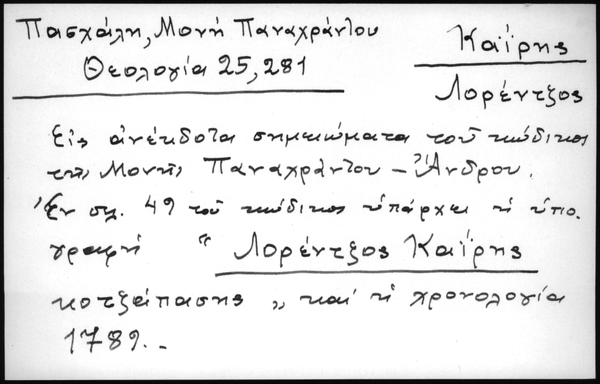 Πασχάλη, Μονή Παναχράντου
Θεολογία 25, 281
Καΐρης
Λορέντζος
Εἰς ἀνέκδοτα σημειώματα τοῦ κώδικος
τῆς Μονῆς Παναχράντου - Ἄνδρου.
Ἐν σελ. 49 τοῦ κώδικος ὑπάρχει ἡ ὑπο.
γραφή " Λορέντζος Καΐρης
κοτζάπασης „ καί ἡ χρονολογία
1789.-